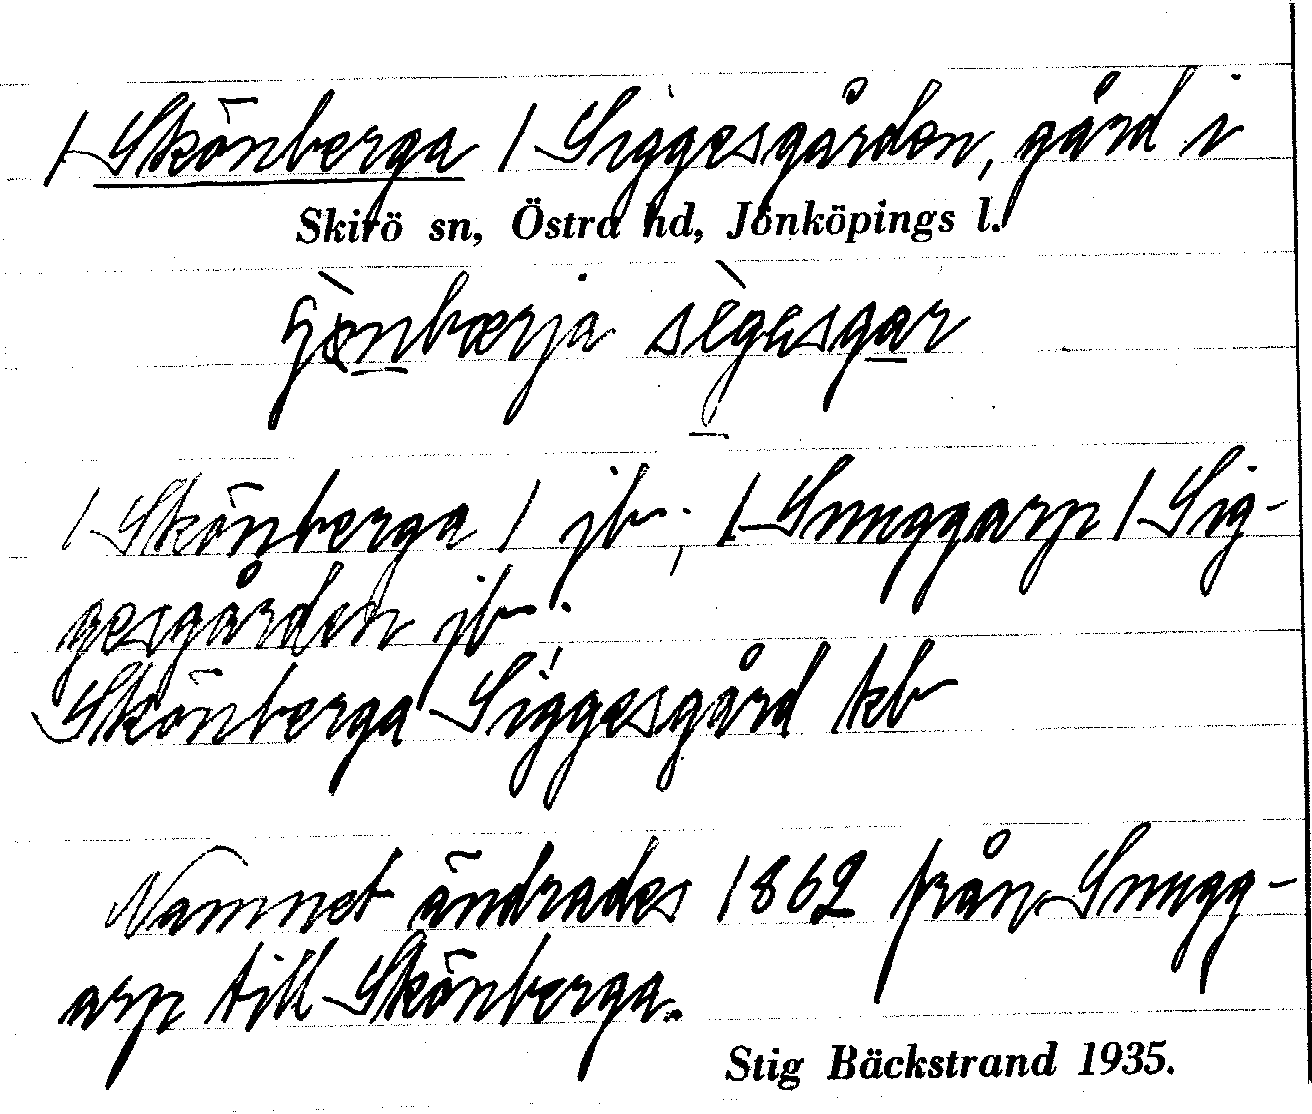 / Skönberga / Siggesgården, gård i
Skirö sn, Östra hd, Jönköpings l.
/ Skönberga / jb.; / Snuggarp / Sig-
gesgården jb.;
Skönberga Siggesgård kb
Namnet ändrades 1862 från Snugg-
arp till Skönberga.
Stig Bäckstrand 1935.